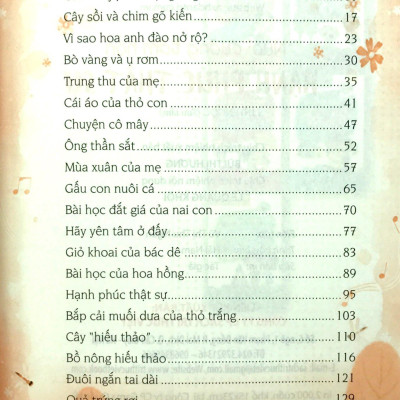 Cây sồi và chim gõ kiến 17
Vì sao hoa anh đào nở rộ? 23
Bò vàng và ụ rơm 30
Trung thu của mẹ 35
Cái áo của thỏ con 41
Chuyện cô mây 47
Ông thần sắt 52
Mùa xuân của mẹ 57
Gấu con nuôi cá 65
Bài học đắt giá của nai con 70
Hãy yên tâm ở đấy 77
Giỏ khoai của bác dê 83
Bài học của hoa hồng 89
Hạnh phúc thật sự 95
Bắp cải muối dưa của thỏ trắng 103
Cây "hiếu thảo" 110
Bồ nông hiếu thảo 116
Đuôi ngắn tai dài 121
Quả trứng rơi 129